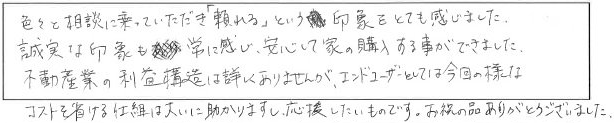 色々と相談に乗っていただき「頼れる」という印象をとても感じました。
誠実な印象も常に感じ、安心して家の購入する事ができました。
不動産業の利益構造は詳しくありませんが、エンドユーザーとしては今回の様な
コストを省ける仕組は大いに助かりますし、応援したいものです。お祝の品ありがとうございました。